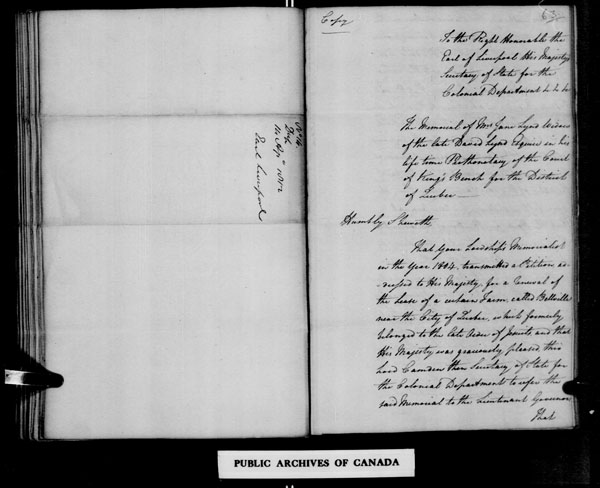 No. 14.
Dupl.
14 Ap. 1812
Earl Liverpool
Copy
63
To the Right Honorable the
Earl of Liverpool His Majesty's
Secretary of State for the
Colonial Department &c &c &c
The Memorial of Mrs. Jane Lynd Widow
of the late David Lynd Esquire in his
life time Prothonotary of the Court
of King's Bench for the District
of Quebec —
Humbly Sheweth
That Your Lordship's Memorialist
in the Year 1804. transmitted a Petition ad-
-dressed to His Majesty, for a renewal of
the Lease of a certain Farm, called Belleville
near the City of Quebec, which formerly
belonged to the late Order of Jesuits, and that
His Majesty was graciously pleased thro
Lord Camden then Secretary of State for
the Colonial Department to refer the
said Memorial to the Lieutenant Governor
That
PUBLIC ARCHIVES OF CANADA